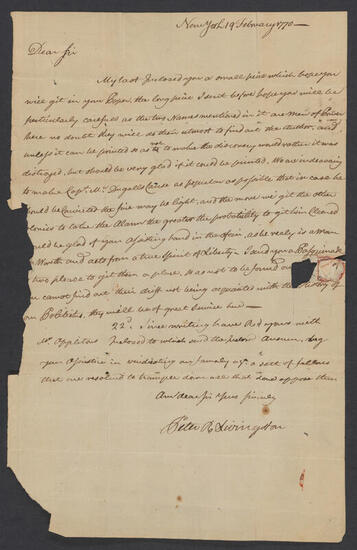 New York 19 February 1770 —
Dear Sir
My last Inclosed you a small piece which hope you
will git in your Paper. the long piece I sent before hope you will be
particularly carefull as the two Names mentioned in it are Men of Power
here no doubt they will do their utmost to find out the Author, and
unless it can be printed so as to make the discovery would rather it was
distroyed, but should be very glad if it could be printed. We are indeavouring
to make Capt. McDugalls Cause as popular as possible that in case he
should be Convicted the fine may be light, and the more we git the other
Colonies to take the Alarm the greater the probability to git him Cleared
would be glad of your Assisting hand in the Affair, as he realy is a man
of Worth and acts from a true Spirit of Liberty. I send you a Pasquinade
two please to git them a place, so as not to be found out
you cannot find out their drift not being acquainted with the
our Politicks, they will be of great Service here —
22d. Since writing I have Recd yours with
Mr. Appleton Inclosed to which send the Answer, beg
your Assistance in vindicating our famely agt. a sett of fellows
that are resolved to trample down all that dare oppose them
Am dear Sir Yours Sincerely
Peter R Livingston